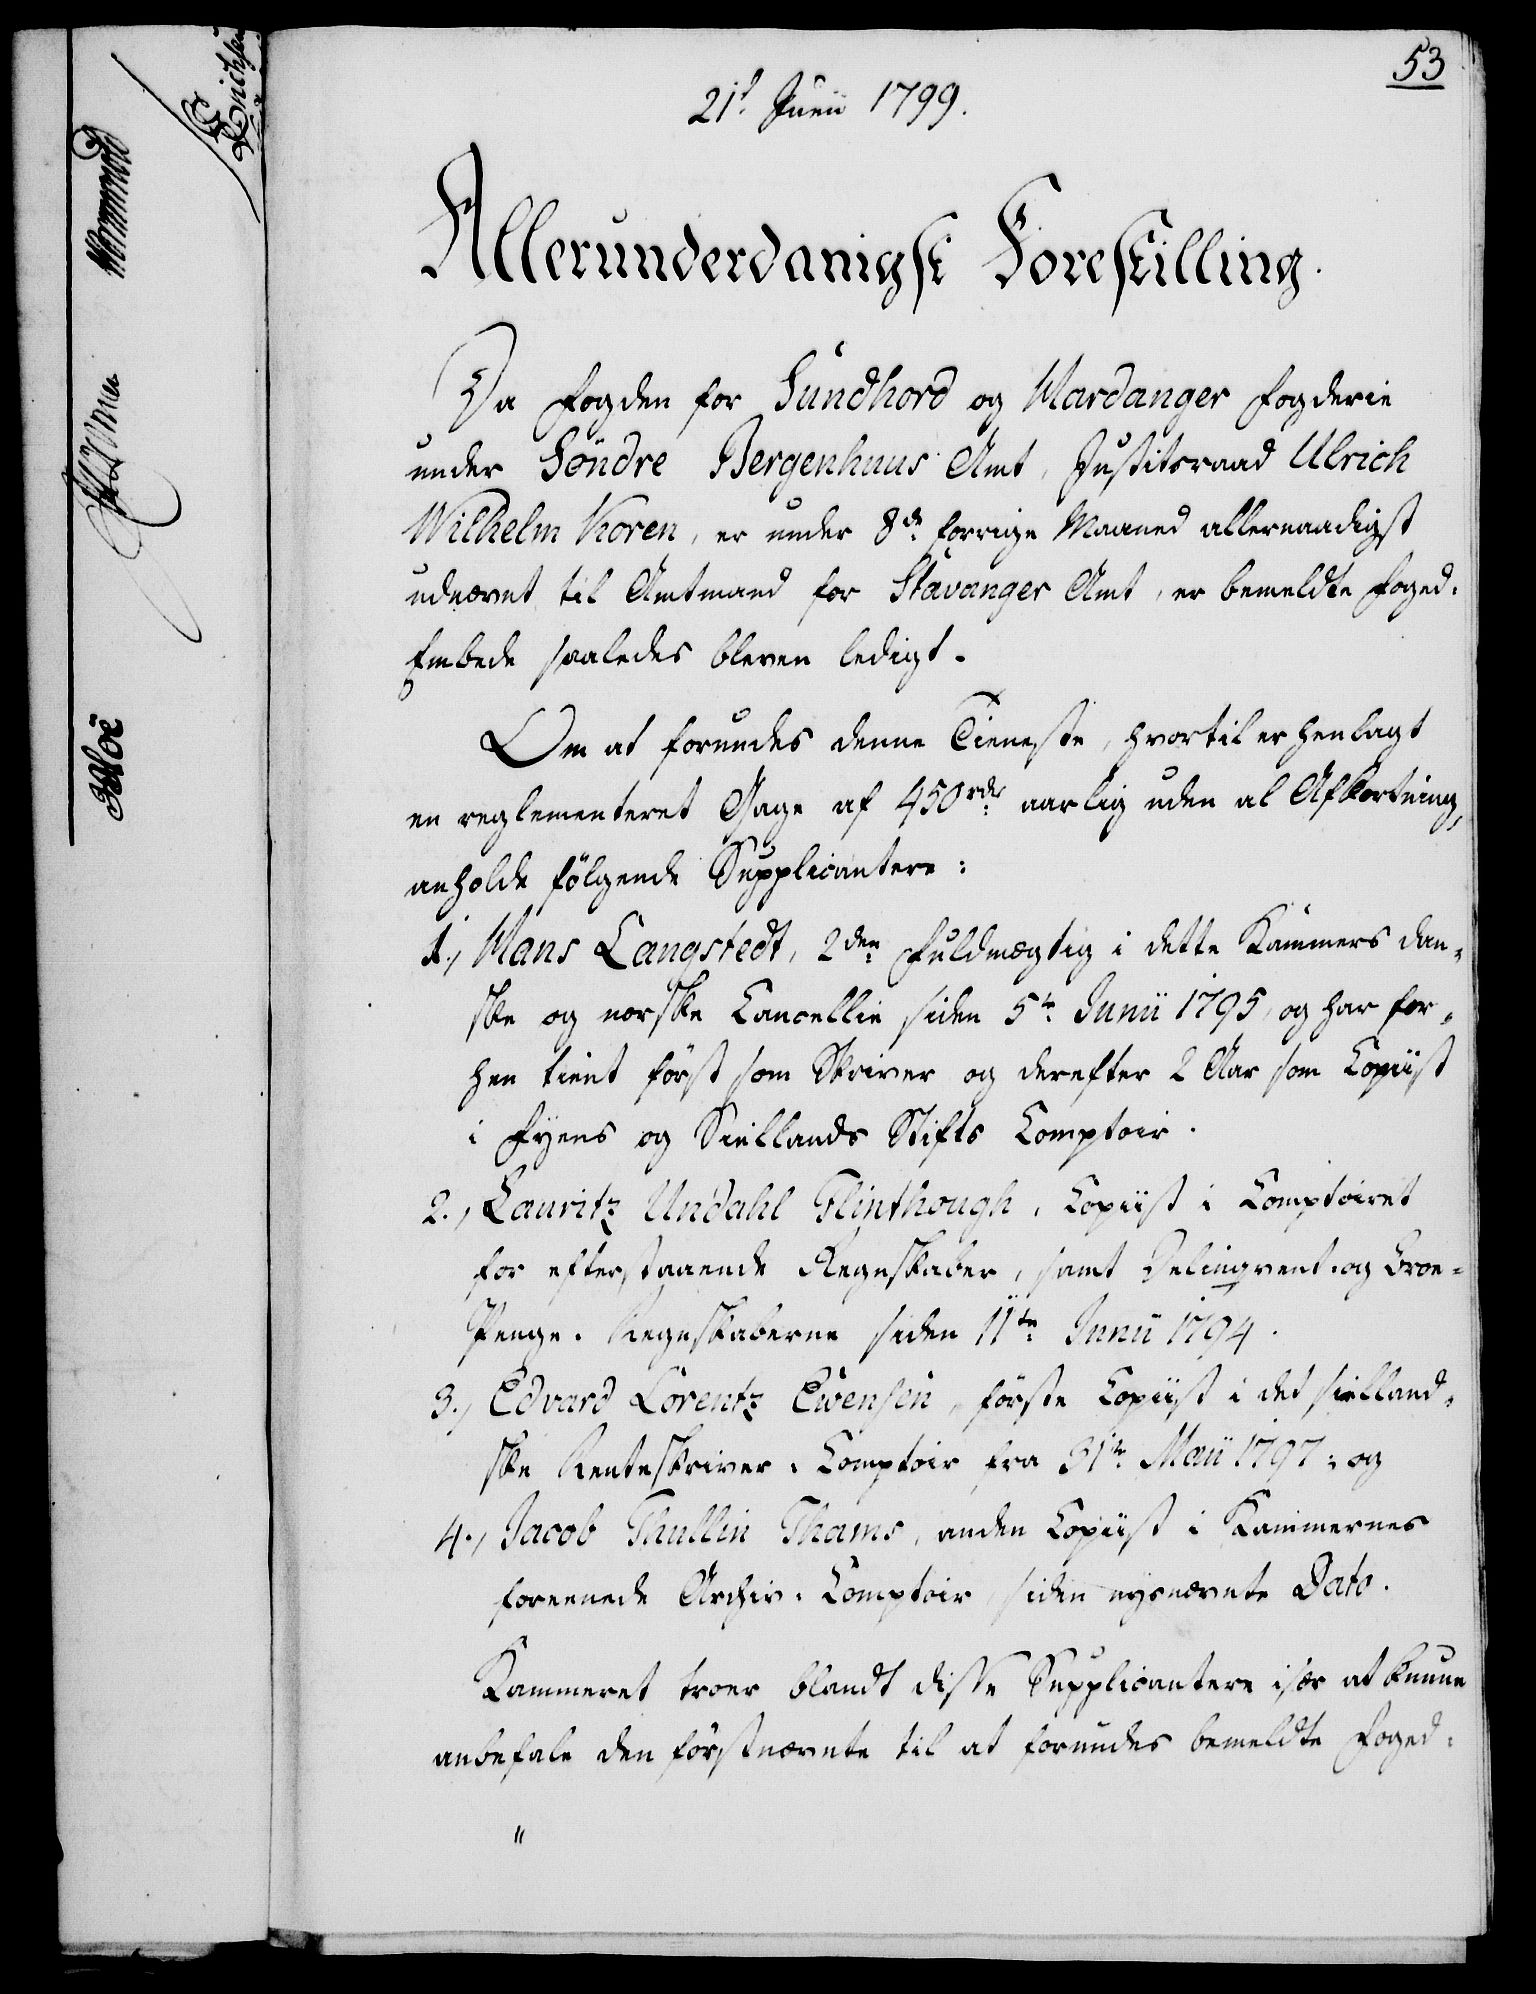 53
21d Junii 1799.
Allerunderdanigst Forestilling.
Da Fogden for Sundhord og Hardanger Fogderie
under Söndre Bergenhuus Amt, Justitsraad Ulrich
Wilhelm Koren, er under 8de forrige Maaned allernaadigst
udnævnt til Amtmand for Stavanger Amt, er bemeldte Foged-
Embede saaledes bleven ledigt.
Om at forundes denne Tieneste, hvortil er henlagt
en reglementeret Gage af 450rdr aarlig uden al Afkortning,
anholde fölgende Supplicantere:
1., Hans Langstedt, 2den Fuldmægtig i dette Kammers dan-
ske og norske Cancellie siden 5te Junii 1795, og har for-
hen tient först som Skriver og derefter 2 Aar som Copiist
i Fyens og Siellands Stifts Comptoir.
2., Lauritz Undahl Flinthough, Copiist i Comptoiret
for efterstaaende Regnskaber, samt Delinqvent- og Broe-
Penge-Regnskaberne siden 11te Junii 1794.
3., Edvard Lorentz Evensen, förste Copiist i det sielland-
ske Renteskriver-Comptoir fra 31te Maii 1797; og
4., Jacob Thullin Thams, anden Copiist i Kammernes
foreenede Archiv-Comptoir, siden nysnævnte Dato.
Kammeret troer blandt disse Supplicantere især at kunne
anbefale den förstnævnte til at forundes bemeldte Foged-
"